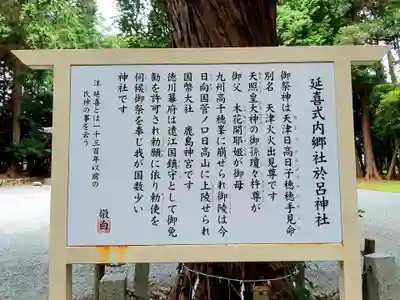 延喜式内郷社於呂神社
御祭神は天津日高日子穂穂手見命
別名　天津火火出見尊です
天照皇大神の御孫瓊々杵尊が
御父　木花開耶姫が御母
九州高千穂峯に崩ぜられ御陵は今
日向国菅ノ口日高山に上陵せられ
国幣大社　鹿島神宮です
徳川幕府は遠江国鎮守として御免
勅を許され勅願に依り勅使を
伺候御祭を奉じ我が国数少い
神社です
注　延喜とは一千三百年以前の
氏神の事を云う
敬白